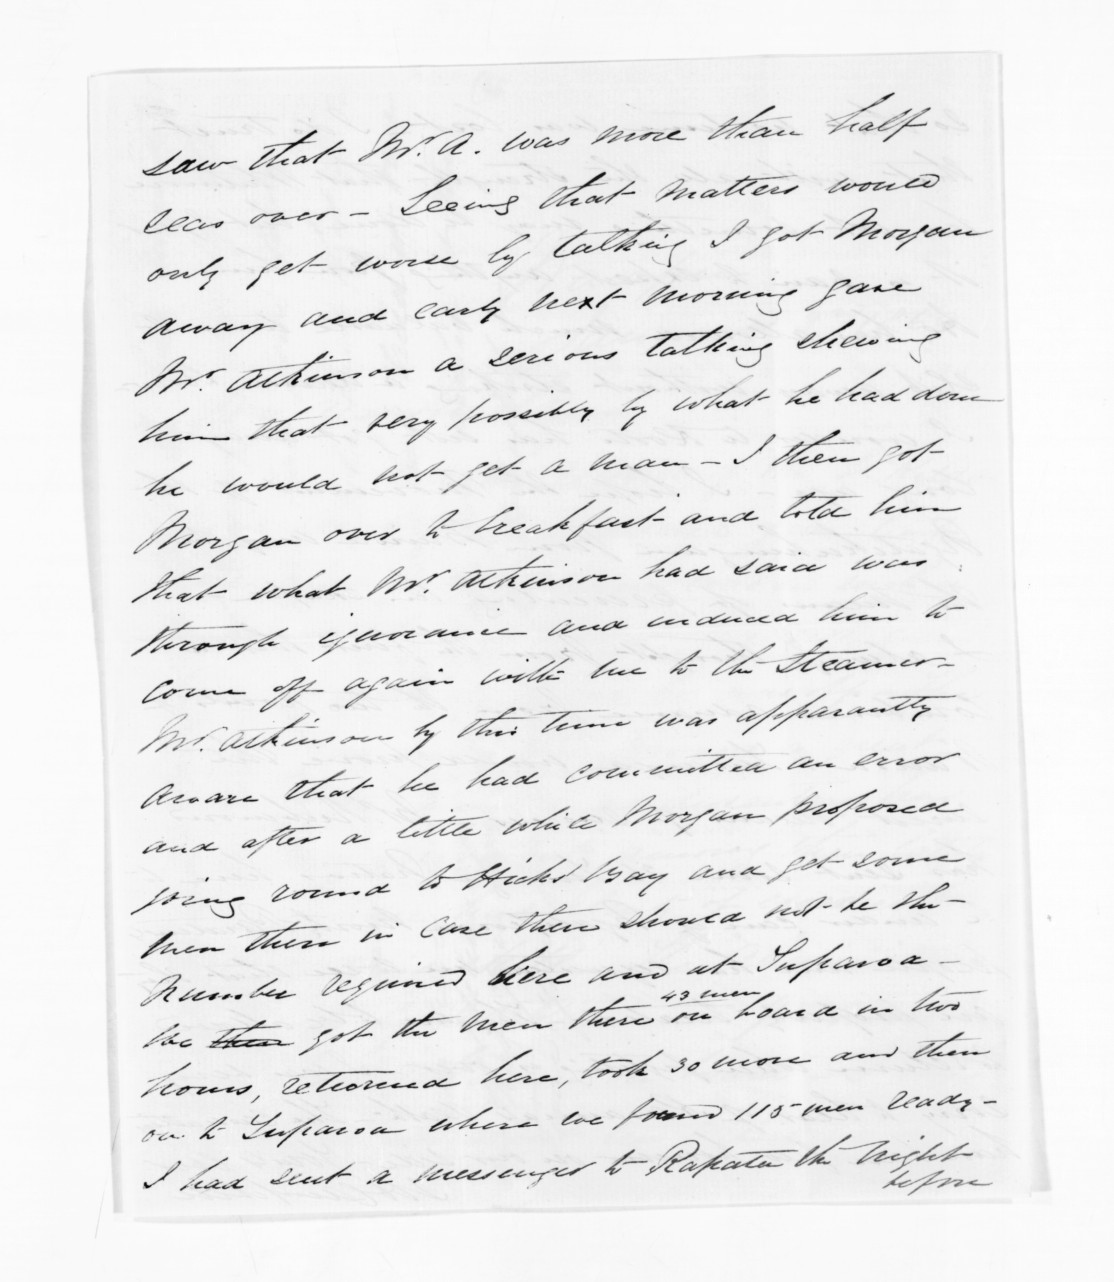 saw that Mr. A. was more than half
seas over – Seeing that matters would
only get worse by talking I got Morgan
away and early next morning gave
Mr. Atkinson a serious talking shewing
him that very possibly by what he had done
he would not get a man – I then got
Morgan over to breakfast and told him
that what Mr. Atkinson had said was
through ignorance and induced him to
come off again with me to the Steamer –
Mr. Atkinson by this time was apparantly
aware that he had committed an error
and after a little while Morgan proposed
going round to Hicks' Bay and get some
men there in case there should not be the –
number required here and at Tuparoa –
We then got the men there 43 men on board in two
hours, returned here, took 30 more and then
on to Tuparoa where we found 115 men ready –
I had sent a messenger to Rapata the night
before